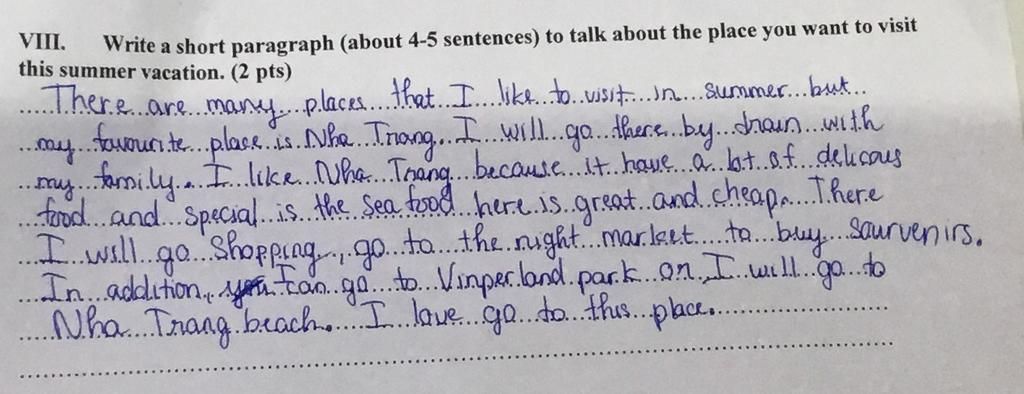 VIII. Write a short paragraph (about 4-5 sentences) to talk about the place you want to visit
this summer vacation. (2 pts)
There are many places that I like to visit in summer but
my favourite place is Nha Trang. I will go there by train with
my family. I like Nha Trang because it have a lot of delicous
food and special is the sea food here is great and cheap. There
I will go shopping, go to the night market to buy saurvenirs.
In addition, I can go to Vinperland park or I will go to
Nha Trang beach. I love go to this place.